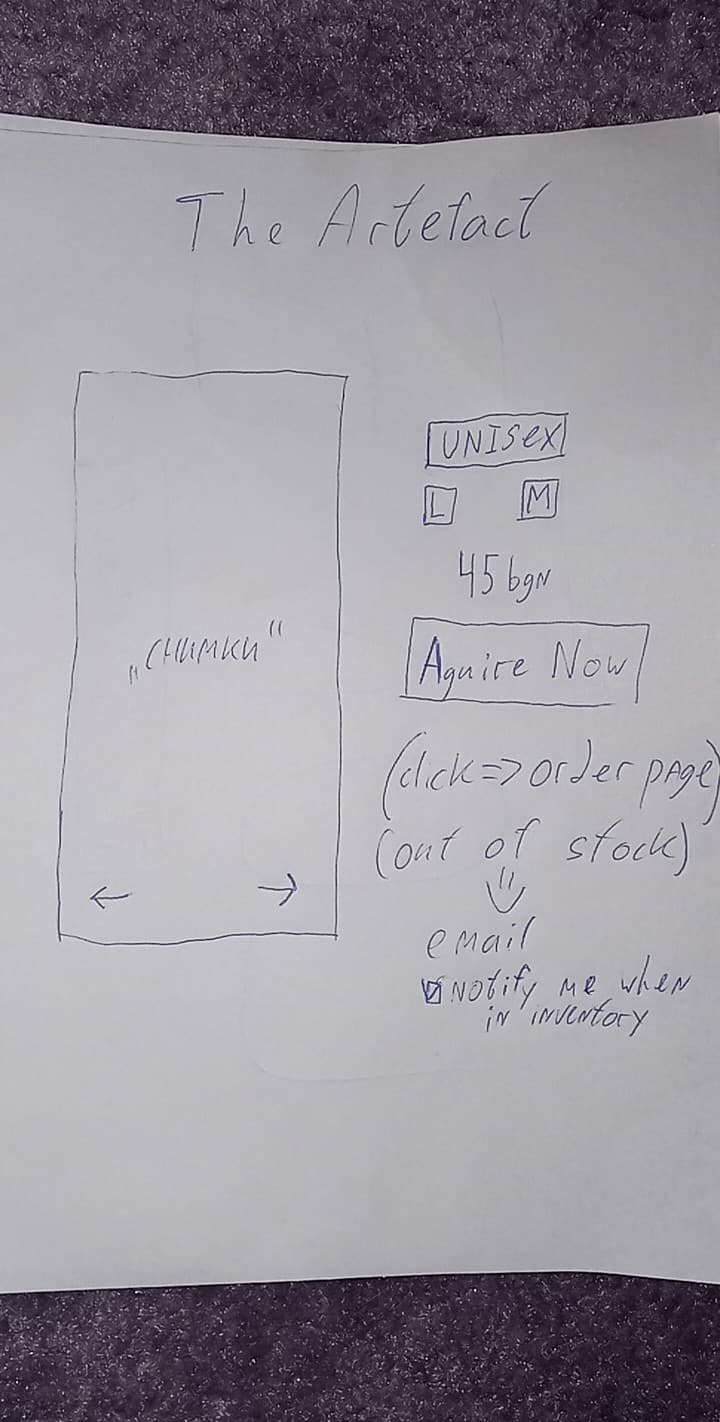 The Artefact
UNISEX
L M
45 bgn
„СНИМКИ"
Aquire Now
(click => order page)
(out of stock)
email
Notify me when
in inventory